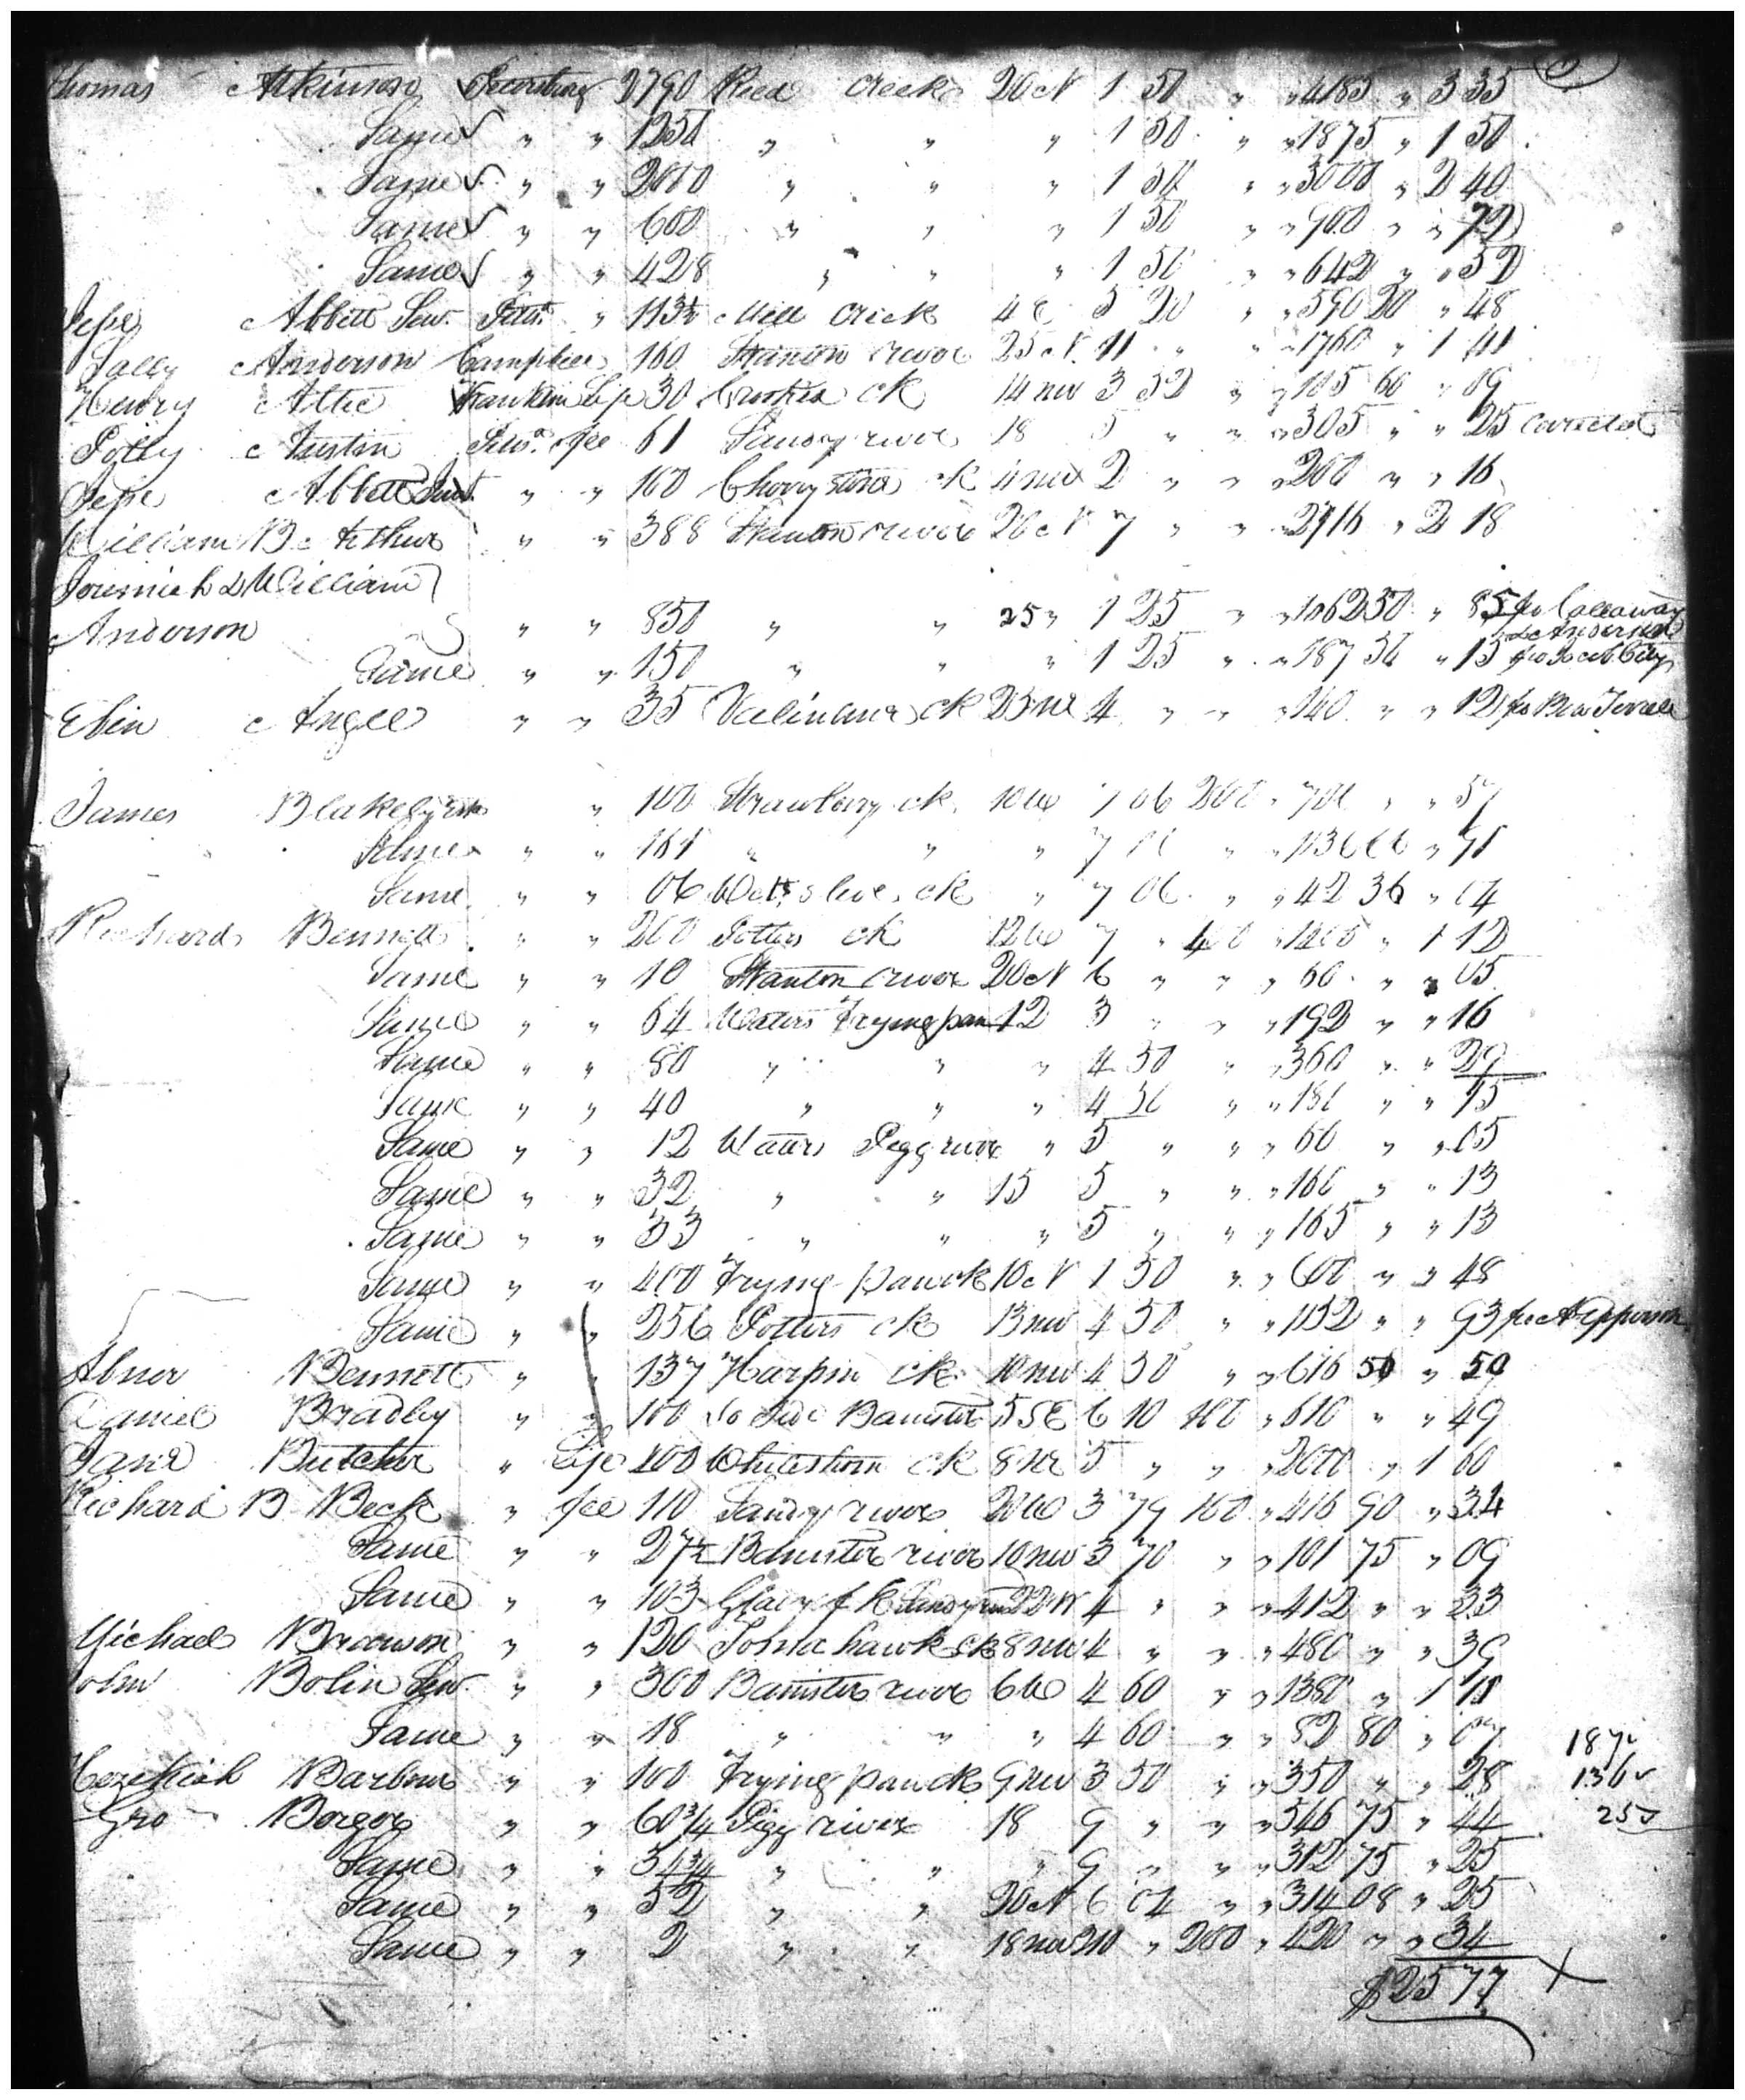 Thomas Atkinson 2790 Reed Creek 20 N 1 50 " " 4185 " 3 35
Same " " 1250 " " " 1 50 " " 1875 " 1 50
Same " " 2000 " " " 1 50 " " 3000 " 2 40
Same " " 600 " " " 1 50 " " 900 " " 72
Same " " 428 " " " 1 50 " " 642 " " 52
Jesse Abbett Sen. Pitts. " 113½ Mill Creek 4 E 5 20 " " 590 20 " 48
Sally Anderson Campbell 160 Stanton river 25 N 11 " " 1760 " 1 41
Henry Atkie Franklin Life 30 ck 14 NW 3 52 " " 105 60 " 09
Polly Austin Pitts. fee 61 Sandy river 18 5 " " " 305 " " 25 Corrected
Jesse Abbett " " 100 Cherrystone ck 4 2 " " " 200 " " 16
William B Arthur " " 388 Stanton river 20 N 7 " " " 2716 " 2 18
Jeremiah & William
Anderson " " 850 " " 25 " 1 25 " " 1062 50 " 85 fro Callaway & Anderson
Same " " 150 " " " 1 25 " " 187 50 " 15 fro
Ebin Angel " " 35 ck 25 NE 4 " " " 140 " " 12 fro
James Blakely " 100 Strawbery ck 10 W 7 06 200 " 706 " " 57
Same " " 161 " " " 7 06 " " 1136 66 " 91
Same " " 06 ck " 7 06 " " 42 36 " 04
Richard Bennett " " 200 Potters ck 12 W 7 " 400 " 1400 " 1 12
Same " " 10 Stanton river 20 N 6 " " " 60 " " 05
Same " " 64 Waters Fryingpan 12 3 " " " 192 " " 16
Same " " 80 " " " 4 50 " " 360 " " 29
Same " " 40 " " " 4 50 " " 180 " " 15
Same " " 12 Waters Pigg river " 5 " " " 60 " " 05
Same " " 32 " " 15 5 " " " 160 " " 13
Same " " 33 " " " 5 " " " 165 " " 13
Same " " 400 Frying pan ck 10 N 1 50 " " 600 " " 48
Same " " 256 Potters ck 13 NW 4 50 " " 1152 " " 93 fro Apperson
Abner Bennett " " 137 Harpin ck 10 NW 4 50 " " 616 50 " 50
Daniel Bradley " " 100 So side Banister 5 SE 6 10 100 " 610 " " 49
Jane Butcher " Life 400 Whitethorn ck 8 NE 5 " " " 2000 " 1 60
Richard B Beck " fee 110 Sandy river 20 W 3 79 160 " 416 90 " 34
Same " " 27½ Banister river 10 NW 3 70 " " 101 75 " 09
Same " " 103 22 W 4 " " " 412 " " 33
Michael Brawson " " 120 Tomahawk ck 8 NW 4 " " " 480 " " 39
John Bolin Sen. " " 300 Banister river 6 W 4 60 " " 1380 " 1 11
Same " " 18 " " " 4 60 " " 82 80 " 07
187
Hezekiah Barbour " " 100 Frying pan ck 9 NW 3 50 " " 350 " " 28
136
Geo Berger " " 60¾ Pigg river 18 9 " " " 546 75 " 44
255
Same " " 34¾ " " " 9 " " " 312 75 " 25
Same " " 52 " " 20 N 6 04 " " 314 08 " 25
Same " " 2 " " 18 NW 210 " 200 " 420 " " 34
$25 77